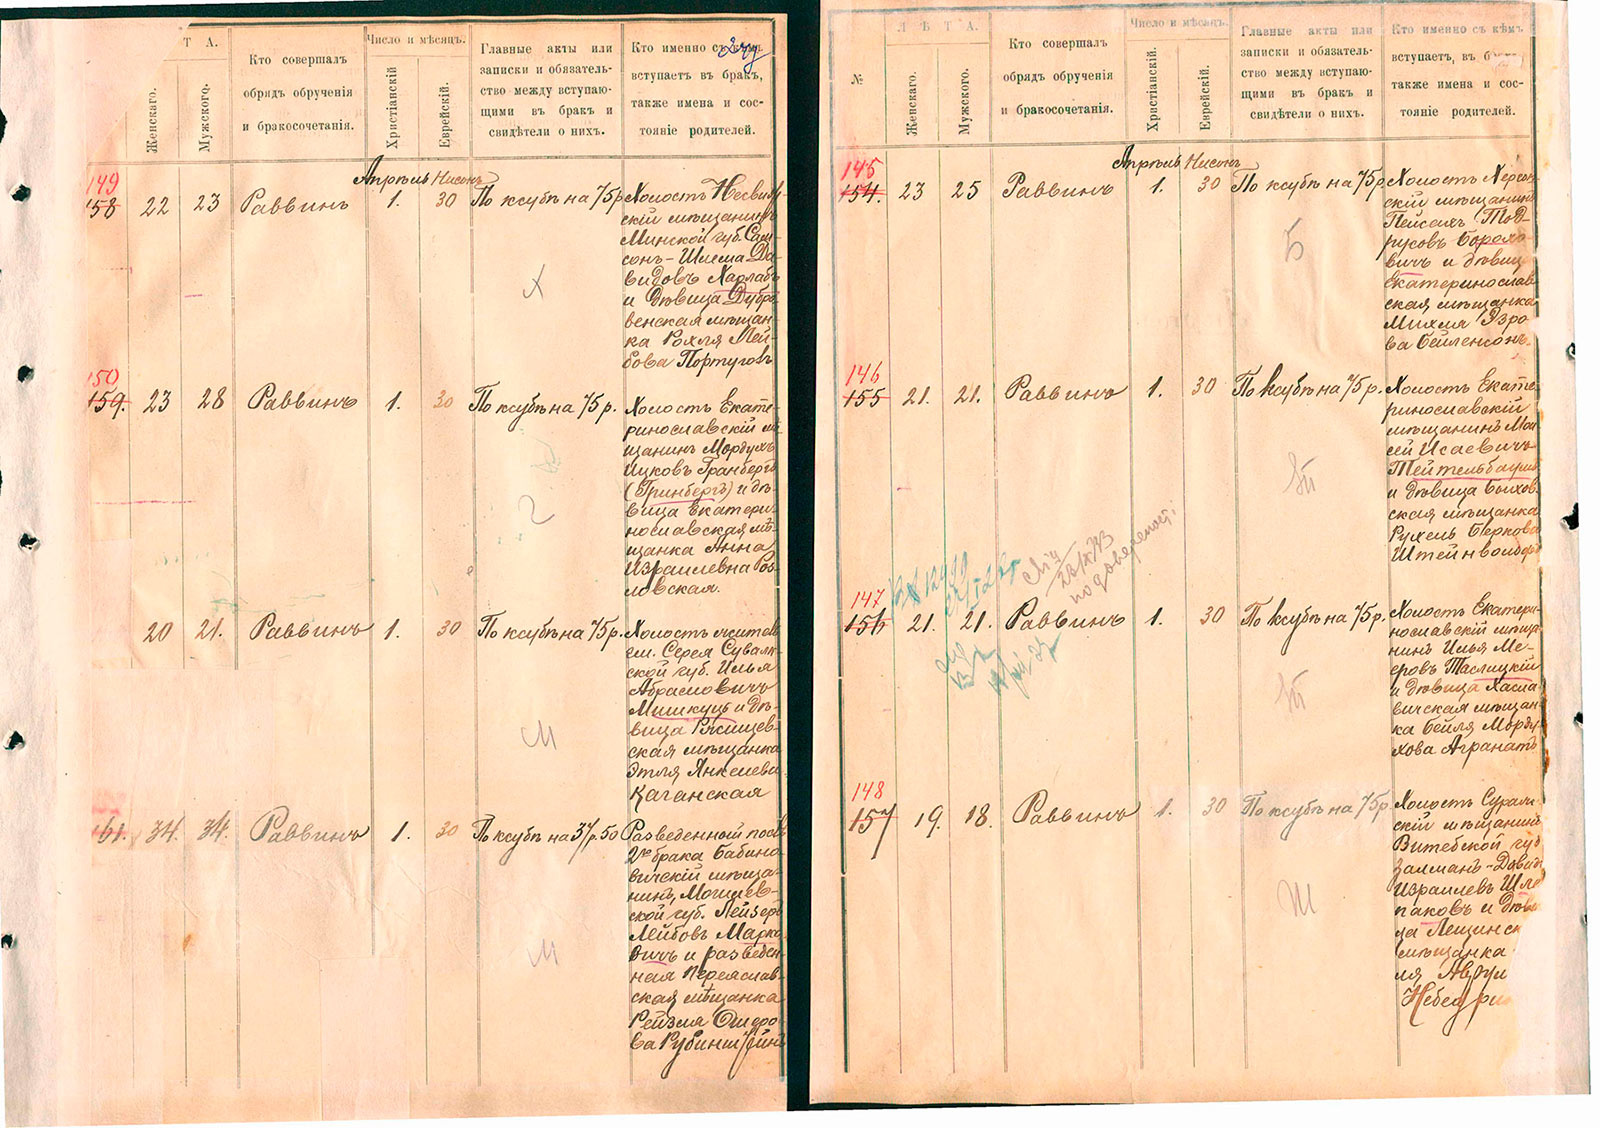 Т А.
Женскаго.
Мужского.
Кто совершалъ
обрядъ обрученія
и бракосочетанія.
Число и мѣсяцъ.
Христіанскій
Еврейскій.
Главные акты или
записки и обязатель-
ство между вступаю-
щими въ бракъ и
свидѣтели о нихъ.
Кто именно съ кѣмъ
вступаетъ въ бракъ,
также имена и сос-
тояніе родителей.
Апрѣль Нисонъ
149
158 22 23 Раввинъ 1. 30 По ксубѣ на 75 р.
Холостъ Несвиж-
скій мѣщанинъ
Минской губ. Сам-
сонъ-Шлема Да-
видовъ Харлабъ
и дѣвица Дубро-
венская мѣщан-
ка Рохля Лей-
бова Португовъ
Х
150
159. 23 28 Раввинъ 1. 30 По ксубѣ на 75 р.
Холостъ Екате-
ринославскій мѣ-
щанинъ Мордухъ
Ицковъ Гранбергъ
(Гринбергъ) и дѣ-
вица Екатери-
нославская мѣ-
щанка Анна
Израилевна Роз-
ловская.
?
20 21. Раввинъ 1. 30 По ксубѣ на 75 р.
Холостъ житель
м. Серея Сувалк-
ской губ. Илья
Абрамовичъ
Мишкуцъ и дѣ-
вица Ряснщев-
ская мѣщанка
Этля Янкелева
Каганская
М
161. 34. 34. Раввинъ 1. 30 По ксубѣ на 37 р. 50
Разведенный послѣ
2го брака Бабино-
вичскій мѣща-
нинъ, Могилев-
ской губ. Лейзеръ
Лейбовъ Марко-
вичъ и разведен-
ная Переяслав-
ская мѣщанка
Рейзля Ошеро-
ва Рубинштейнъ
М
№
Л Ѣ Т А.
Женскаго.
Мужского.
Кто совершалъ
обрядъ обрученія
и бракосочетанія.
Число и мѣсяцъ.
Христіанскій.
Еврейскій.
Главные акты или
записки и обязатель-
ство между вступаю-
щими въ бракъ и
свидѣтели о нихъ.
Кто именно съ кѣмъ
вступаетъ, въ бракъ
также имена и сос-
тояніе родителей.
Апрѣль Нисонъ
145
154. 23 25 Раввинъ 1. 30 По ксубѣ на 75 р.
Холостъ Херсон-
скій мѣщанинъ
Пейсахъ Тод-
русовъ Борохо-
вичъ и дѣвица
Екатеринослав-
ская, мѣщанка
Михля Эзро-
ва Бейленсонъ.
Б
146
155 21. 21. Раввинъ 1. 30 По ксубѣ на 75 р.
Холостъ Екате-
ринославскій
мѣщанинъ Мои-
сей Исаевичъ
Тейтельбаумъ
и дѣвица Быхов-
ская мѣщанка
Рухель Беркова
Штейнвольфъ
Т
по доверенности.
147
156 21. 21. Раввинъ 1. 30 По ксубѣ на 75 р.
Холостъ Екатери-
нославскій мѣща-
нинъ Илья Ме-
еровъ Таслицкій
и дѣвица Хасла-
вичская мѣщан-
ка Бейля Морду-
хова Агранатъ
Т
148
157 19. 18. Раввинъ 1. 30 По ксубѣ на 75 р.
Холостъ Суражс-
кій мѣщанинъ
Витебской губ
Залманъ-Довидъ
Израилевъ Шле-
паковъ и дѣви-
ца Лещинск
мѣщанка
ля
Ш